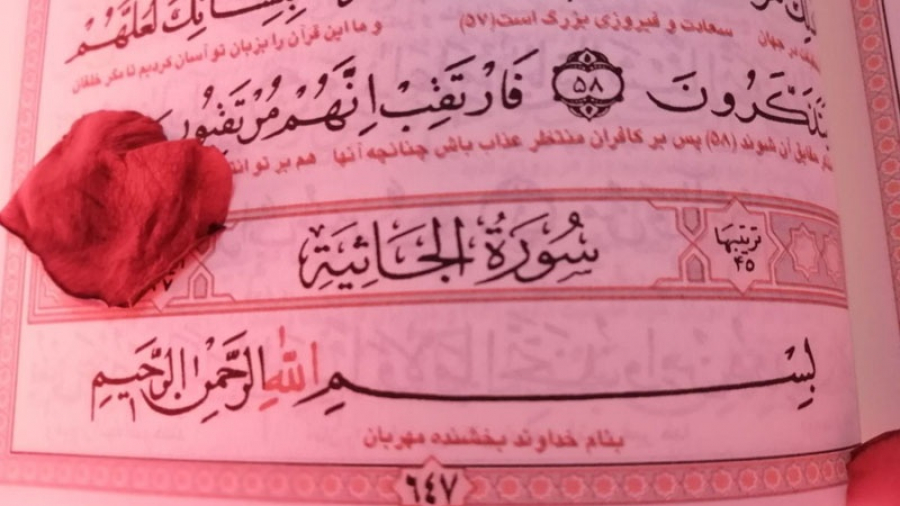 بِلِسَانِكَ لَعَلَّهُمْ
سعادت و فیروزی بزرگ است(۵۷) و ما این قرآن را بزبان تو آسان کردیم تا مگر خلقان
يَتَذَكَّرُونَ ۵۸ فَارْتَقِبْ إِنَّهُمْ مُرْتَقِبُونَ
متذکر حقایق آن شوند (۵۸) پس بر کافران منتظر عذاب باش چنانچه آنها هم بر تو
ترتیبها ۴۵ سُورَةُ الجَاثِيَةِ ۳۷
بِسْمِ اللهِ الرَّحْمٰنِ الرَّحِيمِ
بنام خداوند بخشنده مهربان
۶۴۷